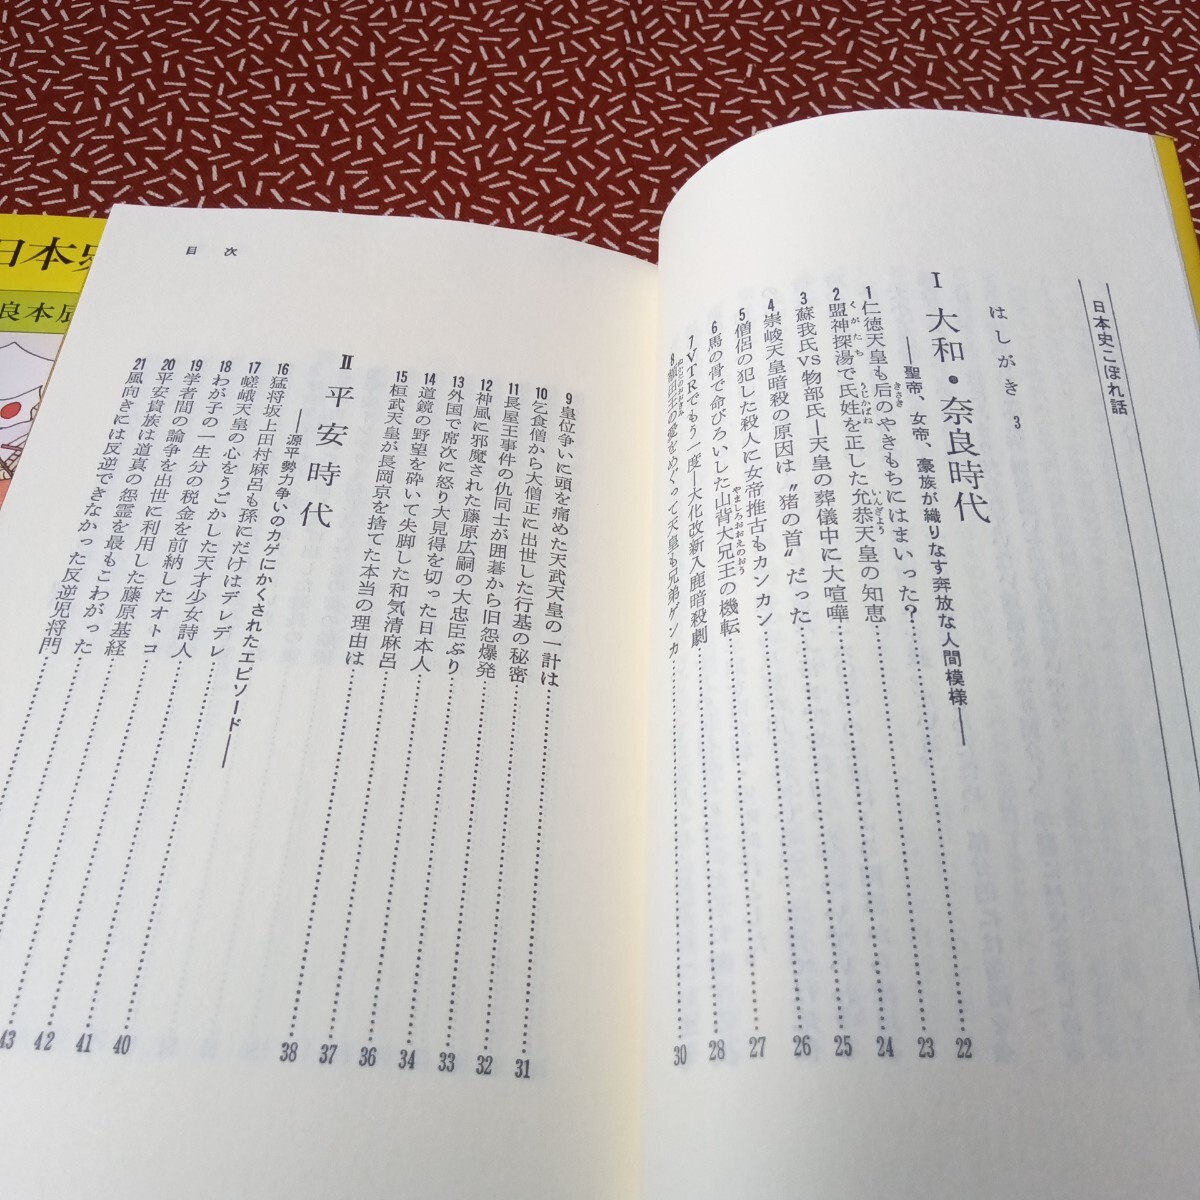 日本史こぼれ話
はしがき 3
I 大和・奈良時代
――聖帝、女帝、豪族が織りなす奔放な人間模様――
1 仁徳天皇も后のやきもちにはまいった？ 22
きさき
2 盟神探湯で氏姓を正した允恭天皇の知恵 23
くがたち うじかばね いんぎょう
3 蘇我氏VS物部氏―天皇の葬儀中に大喧嘩 24
4 崇峻天皇暗殺の原因は〝猪の首〟だった 25
5 僧侶の犯した殺人に女帝推古もカンカン 26
6 馬の骨で命びろいした山背大兄王の機転 27
やましろおおえのおう
7 VTRでもう一度―大化改新入鹿暗殺劇 28
8 額田王の愛をめぐって天皇も兄弟ゲンカ 30
ぬかたのおおきみ
目次
9 皇位争いに頭を痛めた天武天皇の一計は 31
10 乞食僧から大僧正に出世した行基の秘密 32
11 長屋王事件の仇同士が囲碁から旧怨爆発 33
12 神風に邪魔された藤原広嗣の大忠臣ぶり 34
13 外国で席次に怒り大見得を切った日本人 36
14 道鏡の野望を砕いて失脚した和気清麻呂 37
15 桓武天皇が長岡京を捨てた本当の理由は 38
II 平安時代
――源平勢力争いのカゲにかくされたエピソード――
16 猛将坂上田村麻呂も孫にだけはデレデレ 40
17 嵯峨天皇の心をうごかした天才少女詩人 41
18 わが子の一生分の税金を前納したオトコ 42
19 学者間の論争を出世に利用した藤原基経 43
20 平安貴族は道真の怨霊を最もこわがった
21 風向きには反逆できなかった反逆児将門
日本史
良本辰